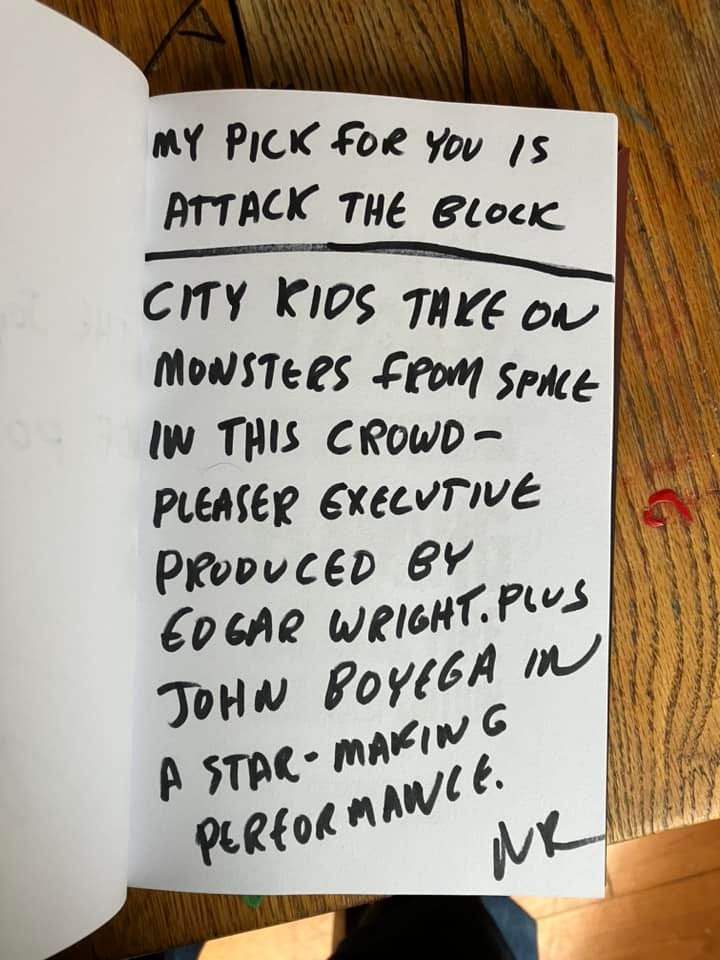 MY PICK FOR YOU IS
ATTACK THE BLOCK
CITY KIDS TAKE ON
MONSTERS FROM SPACE
IN THIS CROWD-
PLEASER EXECUTIVE
PRODUCED BY
EDGAR WRIGHT. PLUS
JOHN BOYEGA IN
A STAR-MAKING
PERFORMANCE.
NR